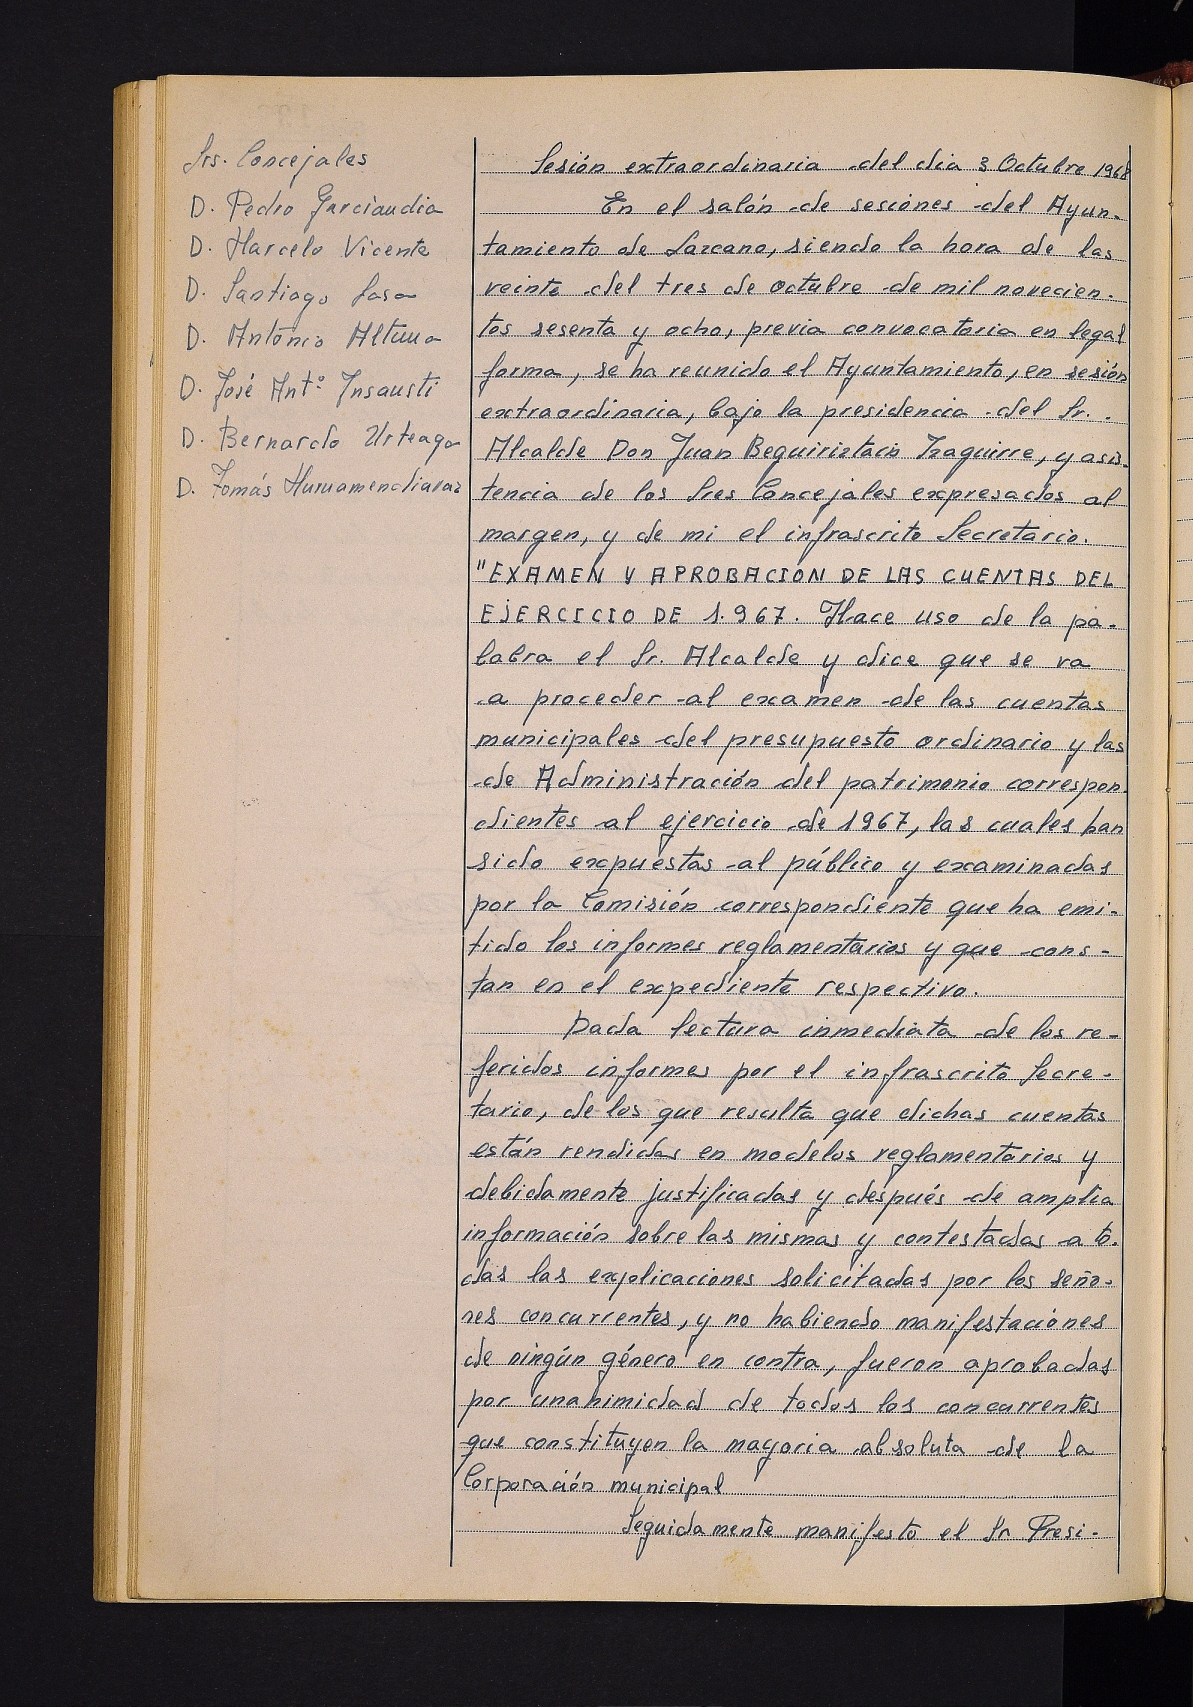 Srs. Concejales
D. Pedro Garciandia
D. Marcelo Vicente
D. Santiago Sasa
D. Antonio Altuna
D. José Antº Insausti
D. Bernardo Urteaga
D. Tomás Mumamendiaraz
Sesión extraordinaria del dia 3 Octubre 1968
En el salón de sesiones del Ayun-
tamiento de Lazcano, siendo la hora de las
veinte del tres de octubre de mil novecien-
tos sesenta y ocho, previa convocatoria en legal
forma, se ha reunido el Ayuntamiento, en sesión
extraordinaria, bajo la presidencia del Sr.
Alcalde Don Juan Beguiriztain Izaguirre, y asis-
tencia de los Sres Concejales expresados al
margen, y de mi el infrascrito Secretario.
"EXAMEN Y APROBACION DE LAS CUENTAS DEL
EJERCICIO DE 1.967. Hace uso de la pa-
labra el Sr. Alcalde y dice que se va
a proceder al examen de las cuentas
municipales del presupuesto ordinario y las
de Administración del patrimonio correspon-
dientes al ejercicio de 1967, las cuales han
sido expuestas al público y examinadas
por la Comisión correspondiente que ha emi-
tido los informes reglamentarios y que cons-
tan en el expediente respectivo.
Dada lectura inmediata de los re-
feridos informes por el infrascrito Secre-
tario, de los que resulta que dichas cuentas
están rendidas en modelos reglamentarios y
debidamente justificadas y después de amplia
información sobre las mismas y contestadas a to-
das las explicaciones solicitadas por los seño-
res concurrentes, y no habiendo manifestaciones
de ningún género en contra, fueron aprobadas
por unanimidad de todos los concurrentes
que constituyen la mayoria absoluta de la
Corporación municipal
Seguidamente manifesto el Sr Presi-